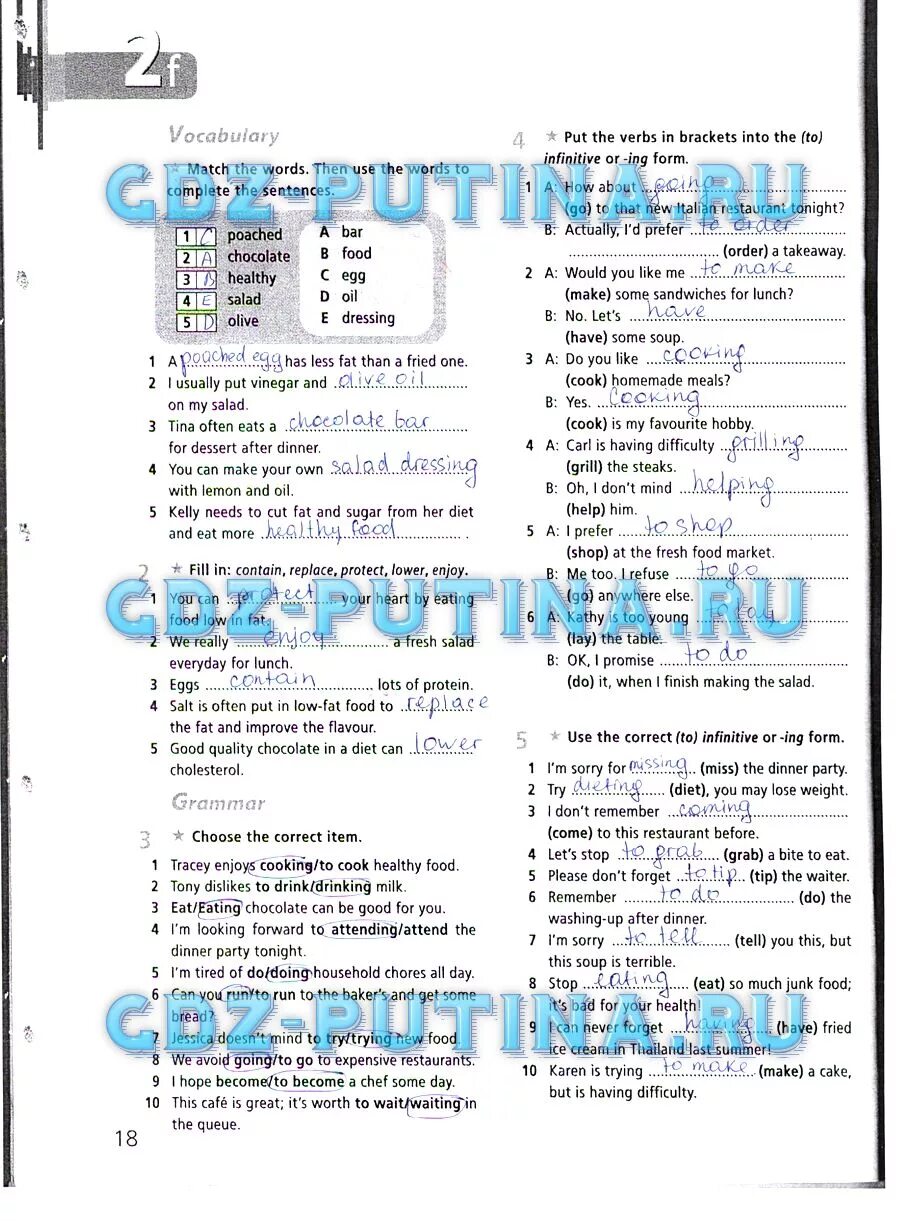 2f
Vocabulary
1 ★ Match the words. Then use the words to
complete the sentences.
1 C poached
2 A chocolate
3 B healthy
4 E salad
5 D olive
A bar
B food
C egg
D oil
E dressing
1 A poached egg has less fat than a fried one.
2 I usually put vinegar and olive oil
on my salad.
3 Tina often eats a chocolate bar
for dessert after dinner.
4 You can make your own salad dressing
with lemon and oil.
5 Kelly needs to cut fat and sugar from her diet
and eat more healthy food.
2 ★ Fill in: contain, replace, protect, lower, enjoy.
1 You can protect your heart by eating
food low in fat.
2 We really enjoy a fresh salad
everyday for lunch.
3 Eggs contain lots of protein.
4 Salt is often put in low-fat food to replace
the fat and improve the flavour.
5 Good quality chocolate in a diet can lower
cholesterol.
Grammar
3 ★ Choose the correct item.
1 Tracey enjoys cooking/to cook healthy food.
2 Tony dislikes to drink/drinking milk.
3 Eat/Eating chocolate can be good for you.
4 I'm looking forward to attending/attend the
dinner party tonight.
5 I'm tired of do/doing household chores all day.
6 Can you run/to run to the baker's and get some
bread?
7 Jessica doesn't mind to try/trying new food.
8 We avoid going/to go to expensive restaurants.
9 I hope become/to become a chef some day.
10 This café is great; it's worth to wait/waiting in
the queue.
18
4 ★ Put the verbs in brackets into the (to)
infinitive or -ing form.
1 A: How about going
(go) to that new Italian restaurant tonight?
B: Actually, I'd prefer to order
(order) a takeaway.
2 A: Would you like me to make
(make) some sandwiches for lunch?
B: No. Let's have
(have) some soup.
3 A: Do you like cooking
(cook) homemade meals?
B: Yes. Cooking
(cook) is my favourite hobby.
4 A: Carl is having difficulty grilling
(grill) the steaks.
B: Oh, I don't mind helping
(help) him.
5 A: I prefer to shop
(shop) at the fresh food market.
B: Me too. I refuse to go
(go) anywhere else.
6 A: Kathy is too young to lay
(lay) the table.
B: OK, I promise to do
(do) it, when I finish making the salad.
5 ★ Use the correct (to) infinitive or -ing form.
1 I'm sorry for missing (miss) the dinner party.
2 Try dieting (diet), you may lose weight.
3 I don't remember coming
(come) to this restaurant before.
4 Let's stop to grab (grab) a bite to eat.
5 Please don't forget to tip (tip) the waiter.
6 Remember to do (do) the
washing-up after dinner.
7 I'm sorry to tell (tell) you this, but
this soup is terrible.
8 Stop eating (eat) so much junk food;
it's bad for your health!
9 I can never forget having (have) fried
ice cream in Thailand last summer!
10 Karen is trying to make (make) a cake,
but is having difficulty.
GDZ-PUTINA.RU
GDZ-PUTINA.RU
GDZ-PUTINA.RU